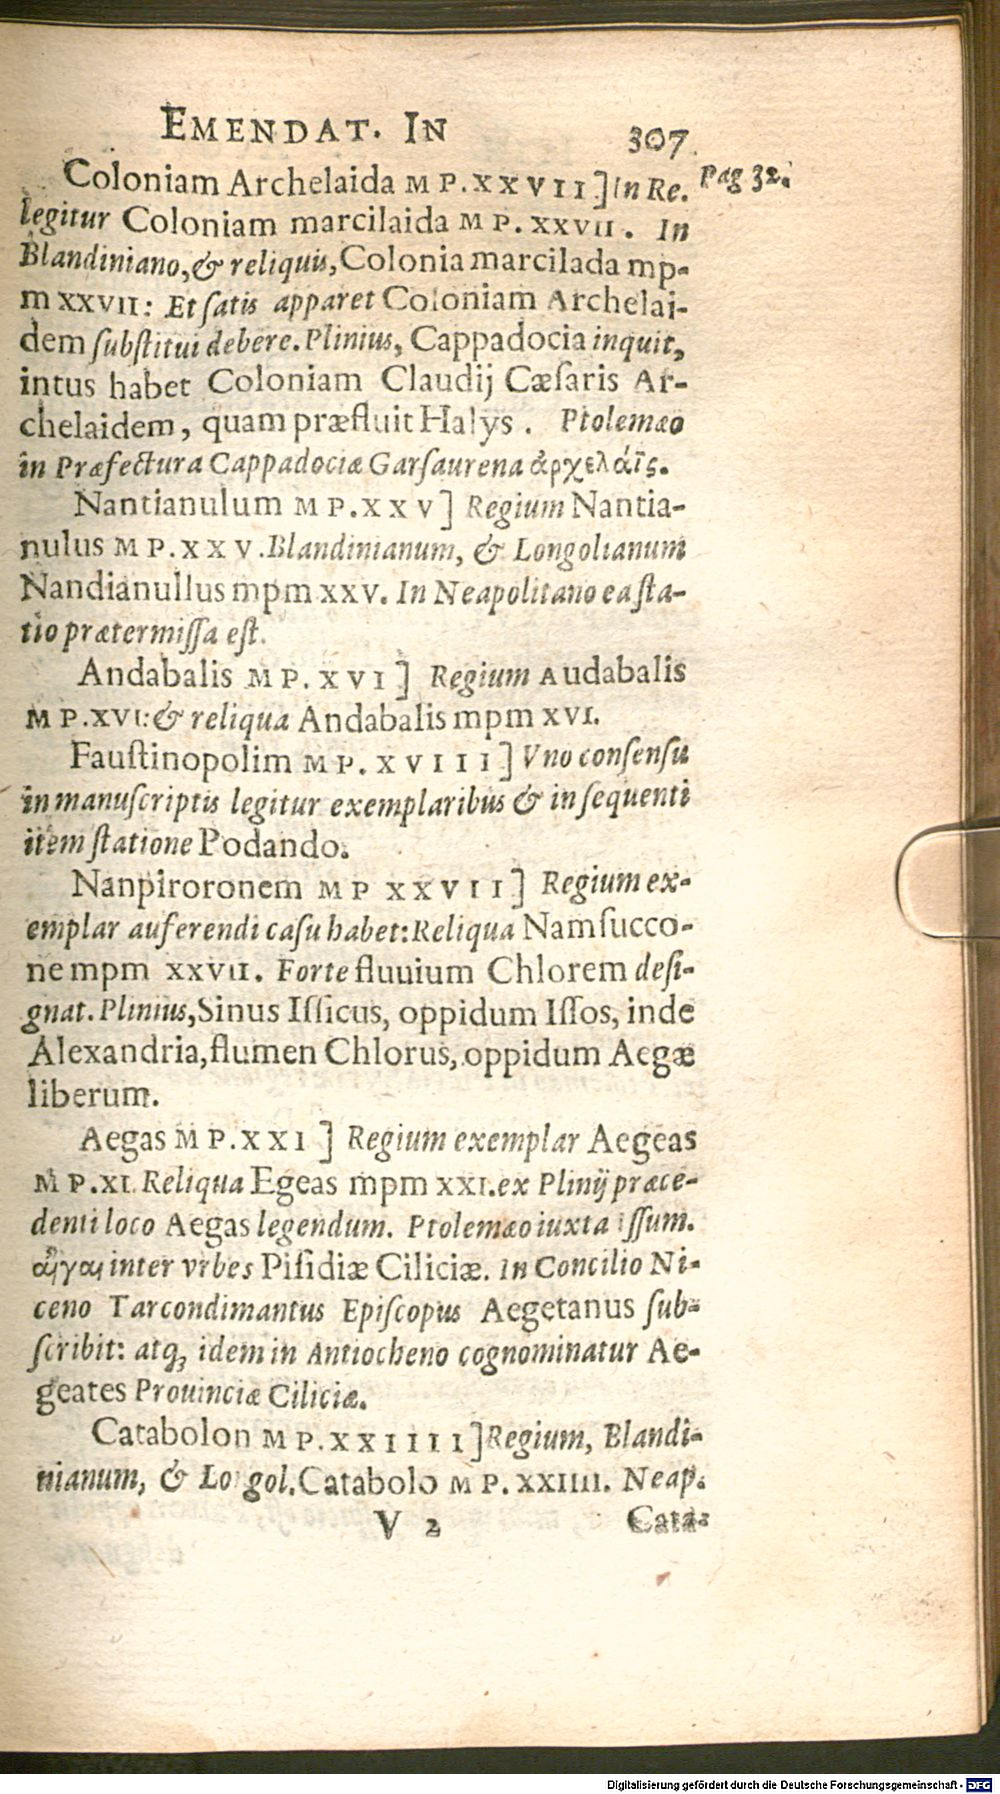 EMENDAT. IN 307
Coloniam Archelaida MP.XXVII] In Re. Pag 32.
legitur Coloniam marcilaida MP.XXVII. In
Blandiniano, & reliquis, Colonia marcilada mp-
m XXVII: Et ſatis apparet Coloniam Archelai-
dem ſubſtitui debere. Plinius, Cappadocia inquit,
intus habet Coloniam Claudij Cæſaris Ar-
chelaidem, quam præfluit Halys. Ptolemæo
in Præfectura Cappadociæ Garſaurena ἀρχελάῒς.
Nantianulum MP.XXV] Regium Nantia-
nulus MP.XXV. Blandinianum, & Longolianum
Nandianullus mpm XXV. In Neapolitano ea ſta-
tio prætermiſſa eſt.
Andabalis MP.XVI] Regium Audabalis
MP.XVI: & reliqua Andabalis mpm XVI.
Fauſtinopolim MP.XVIII] Vno conſenſu
in manuſcriptis legitur exemplaribus & in ſequenti
item ſtatione Podando.
Nanpiroronem MP XXVII] Regium ex-
emplar auferendi caſu habet: Reliqua Namſucco-
ne mpm XXVII. Forte fluvium Chlorem deſi-
gnat. Plinius, Sinus Iſſicus, oppidum Iſſos, inde
Alexandria, flumen Chlorus, oppidum Aegæ
liberum.
Aegas MP.XXI] Regium exemplar Aegeas
MP.XI. Reliqua Egeas mpm XXI. ex Plinij præce-
denti loco Aegas legendum. Ptolemæo iuxta iſſum.
αἶγαι inter vrbes Piſidiæ Ciliciæ. In Concilio Ni-
ceno Tarcondimantus Epiſcopus Aegetanus ſub-
ſcribit: atq; idem in Antiocheno cognominatur Ae-
geates Prouinciæ Ciliciæ.
Catabolon MP.XXIIII] Regium, Blandi-
nianum, & Longol. Catabolo MP.XXIIII. Neap.
V 2 Cata-
Digitalisierung gefördert durch die Deutsche Forschungsgemeinschaft - DFG